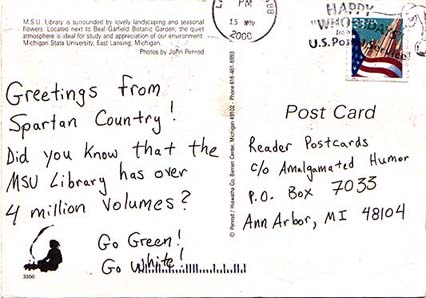 M.S.U. Library is surrounded by lovely landscaping and seasonal
flowers. Located next to Beal-Garfield Botanic Garden, the quiet
atmosphere is ideal for study and appreciation of our environment.
Michigan State University, East Lansing, Michigan.
Photos by John Penrod
Greetings from
Spartan Country!
Did you know that the
MSU Library has over
4 million volumes?
Go Green!
Go White!
3350
© Penrod / Hiawatha Co. Berrien Center, Michigan 49102 - Phone 616-461-6993
PM
15
2000
HAPPY
"WHO
U.S. Postal Service
33
Post Card
Reader Postcards
c/o Amalgamated Humor
P.O. Box 7033
Ann Arbor, MI 48104